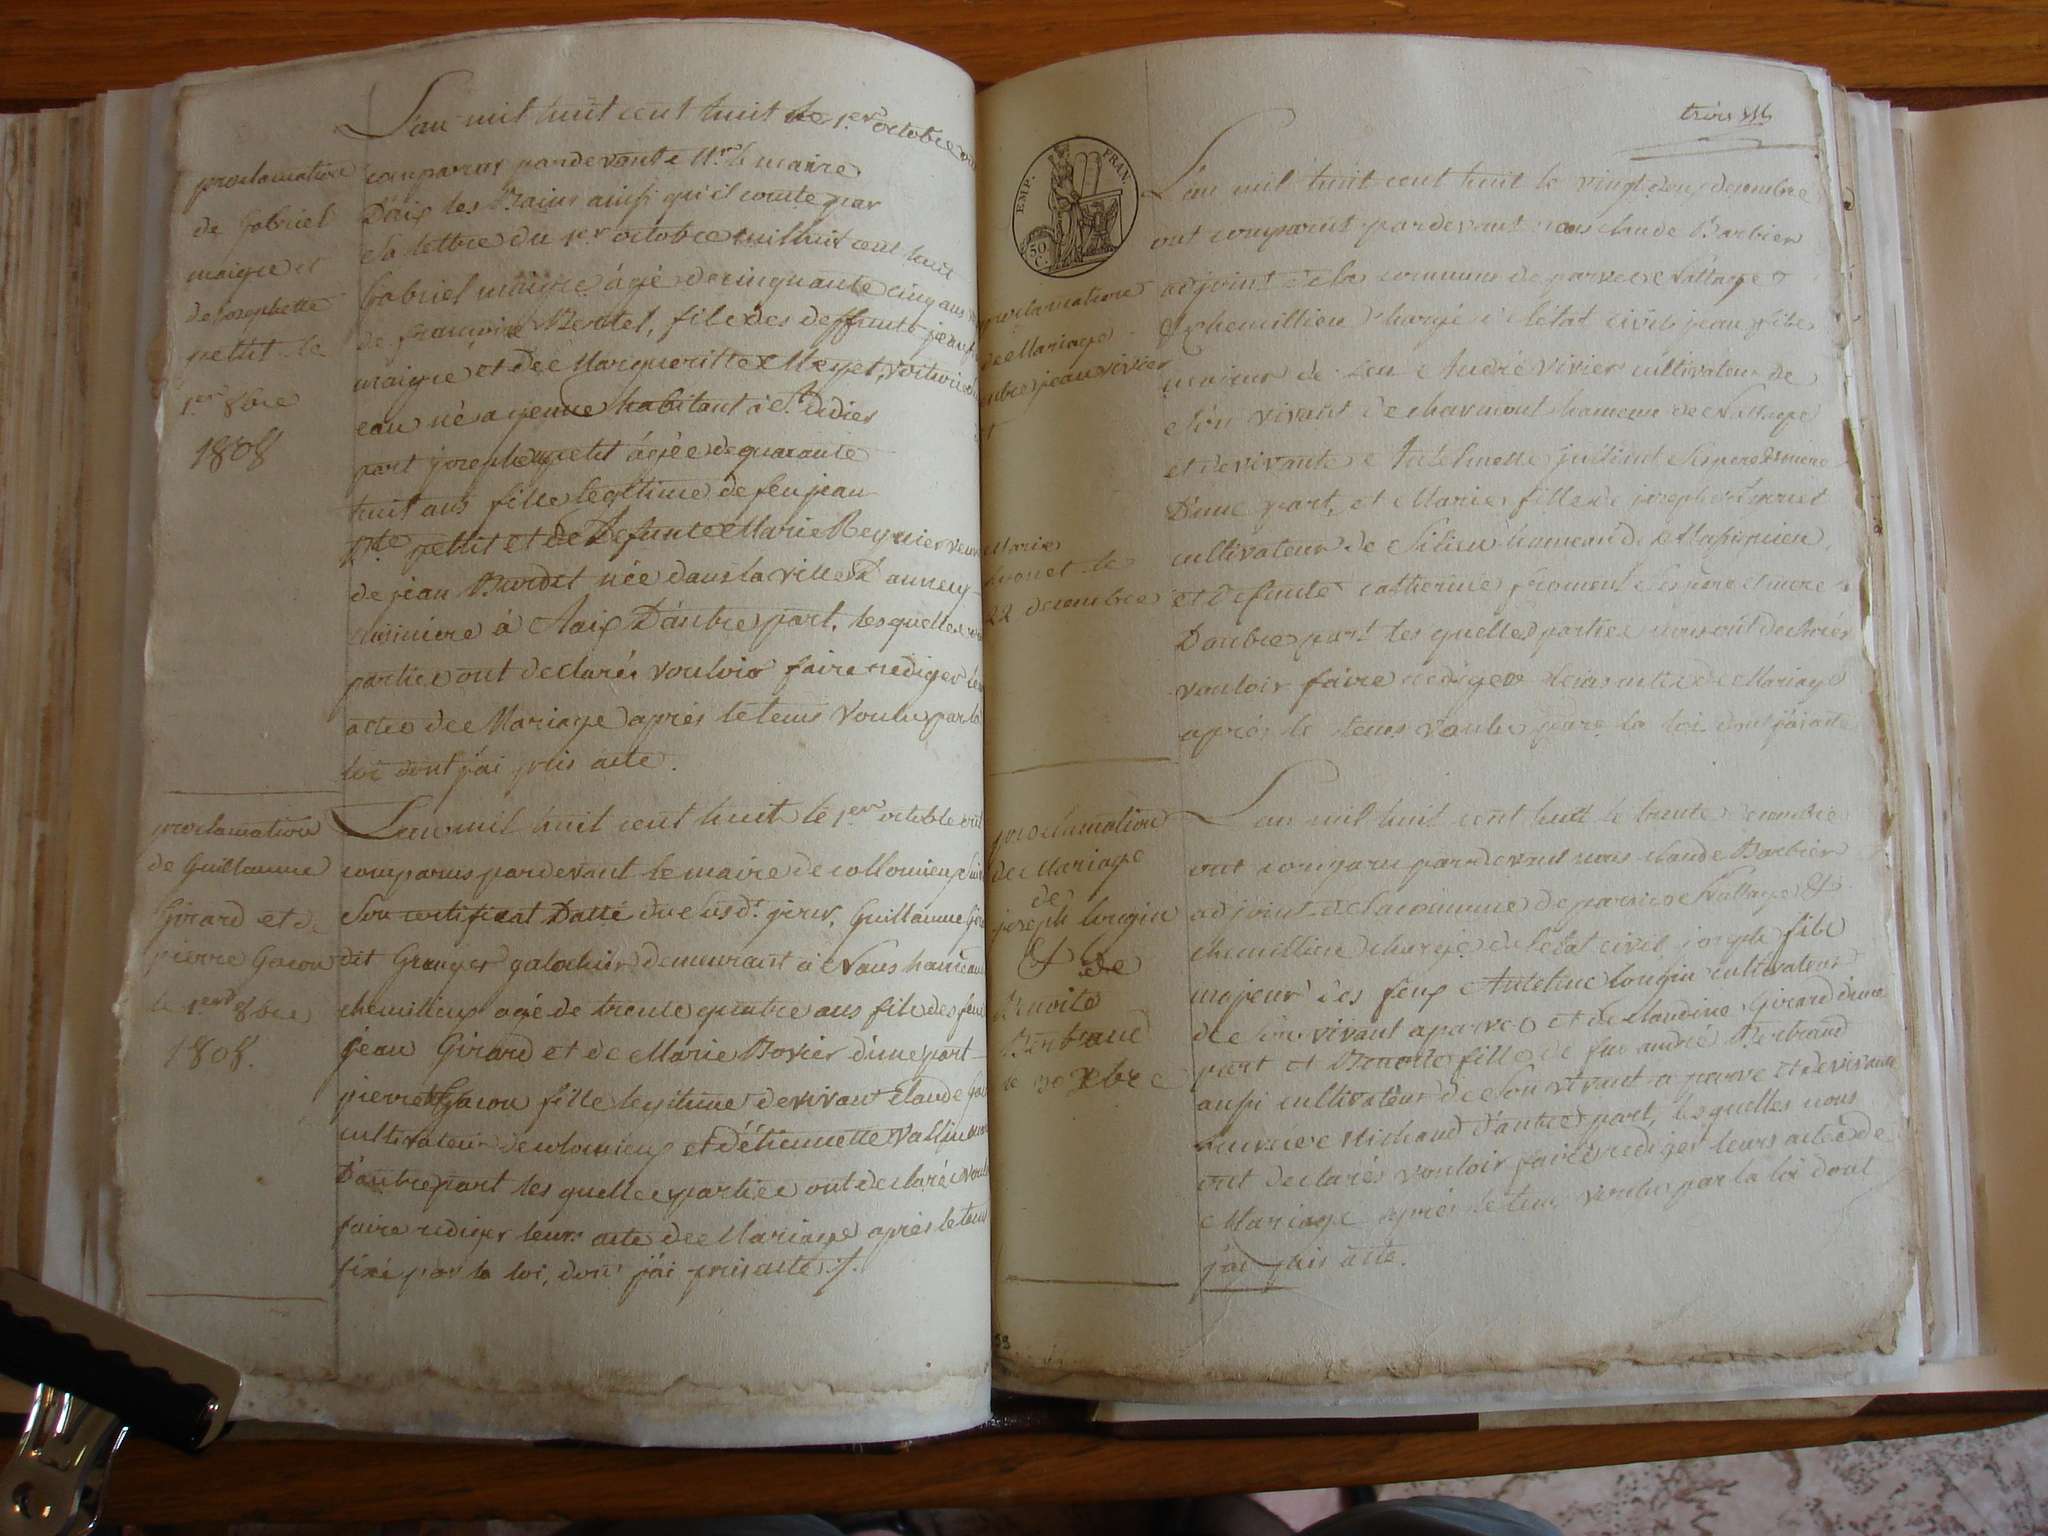 L'an mil huit cent huit le 1.er octobre
proclamation
de Gabriel
maigre et
de josephette
petit le
1.er 8bre
1808
comparus pardevant Mr. le maire
D'aix les Bains ainsi qu'il conste par
sa lettre du 1.er octobre mil huit cent huit
Gabriel maigre âgé de cinquante cinq ans
de françoise Berthet, fils des deffunts jean
maigre et de Margueritte Meyet, voiturier
eau né a yenne habitant à St. didier
part josephe petit âgée de quarante
huit ans fille legitime de feu jean
pte petit et de Defunte Marie Reynier veuve
de jean Burdet née dans la ville D'annecy
cuisiniere à Aaix D'autre part, les quelles
parties ont declarés vouloir faire rediger
acte de Mariage après le tems voulu par la
loi dont j'ai pris acte.
proclamation
de Guillaume
Girard et de
pierre Gacon
le 1.er 8bre
1808.
L'an mil huit cent huit le 1.er octobre ont
comparus pardevant le maire de collomieux
son certificat Datté du susdt. jour, Guillaume
dit Granger galochier demeurant à Nans hameau
chemillieu agé de trente quatre ans fils des feus
jean Girard et de Marie Bovier d'une part
pierre Gacon fille legitime de vivant Claude
cultivateur de colomieux et d'étiennette Vallin
D'autre part les quelles parties ont declaré
faire rediger leur acte de Mariage après le tems
fixé par la loi, dont j'ai pris acte ./.
trois
EMP. FRAN.
50 C.
proclamation
de Mariage
entre jean vivier
et
Marie
le
22 decembre
L'an mil huit cent huit le vingt deux decembre
ont comparut pardevant nous claude Barbier
adjoint de la commune de parves Nattage
& chemillieu chargé de l'état civil jean fils
majeur de feu André Vivier cultivateur de
son vivant de charmont hameau de Nattage
et de vivante Anthelmette ses pere & mere
D'une part, et Marie fille de joseph
cultivateur de Silieu hameau de
et Defunte catherine froment ses pere et mere
D'autre part les quelles parties nous ont declarés
vouloir faire rediger leurs actes de Mariage
après le tems voulu par la loi dont j'ai acte
proclamation
de Mariage
de
joseph longin
& de
Benoite
Bertrand
le 30 Xbre
L'an mil huit cent huit le trente decembre
ont comparu pardevant nous claude Barbier
adjoint de la commune de parves Nattage &
chemillieu chargé de l'état civil joseph fils
majeur des feux Antelme longin cultivateur
de son vivant a parves et de claudine Girard d'une
part et Benoite fille de feu andré Bertrand
aussi cultivateur de son vivant a parve et de vivante
Michaud d'autre part, les quelles nous
ont declarés vouloir faire rediger leurs acte de
Mariage après le tems voulu par la loi dont
j'ai pris acte.